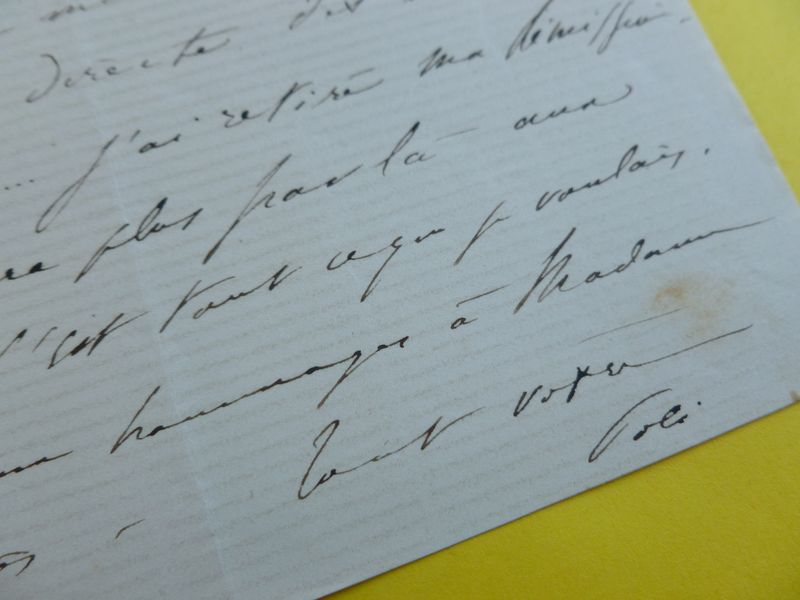 directe des
... j'ai retiré ma démission.
plus par là aux
c'est tout ce que je voulais.
hommages à Madame
Tout votre
Poli